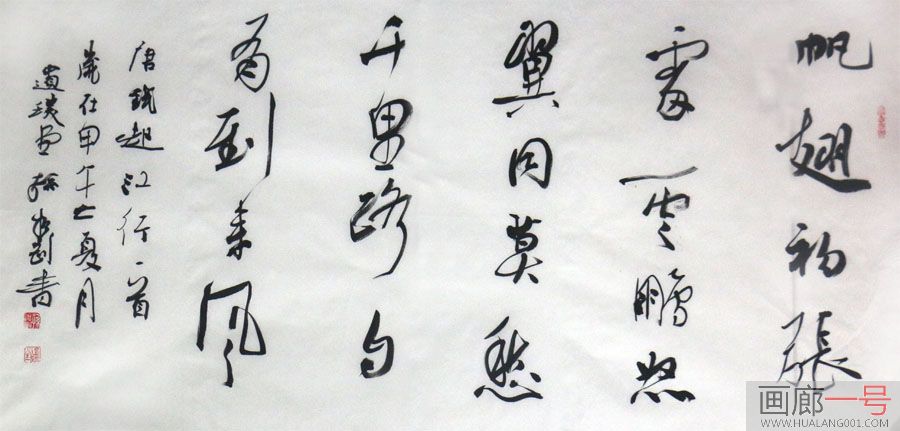 帆翅初張
處雲鵬怒
翼同莫愁
千里路自
有到来風
唐錢起江行一首
歲在甲午之夏月
書
画廊一号
WWW.HUALANG001.COM